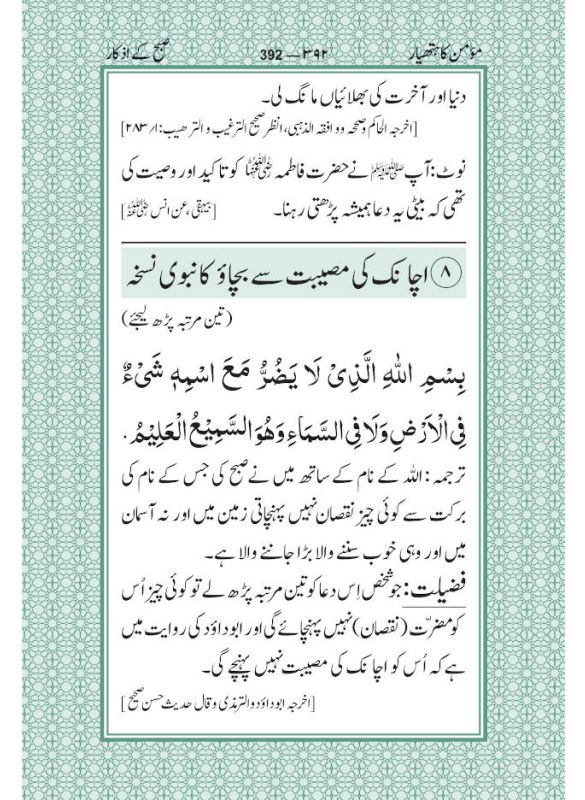 مؤمن کا ہتھیار ۳۹۲ — 392 صبح کے اذکار
دنیا اور آخرت کی بھلائیاں مانگ لی۔
[اخرجہ الحاکم وصححہ ووافقہ الذہبی، انظر صحیح الترغیب والترھیب: ۱/ ۲۸۳]
نوٹ: آپ ﷺ نے حضرت فاطمہ رضی اللہ عنہا کو تاکید اور وصیت کی
تھی کہ بیٹی یہ دعا ہمیشہ پڑھتی رہنا۔ [بیہقی، عن انس رضی اللہ عنہ]
۸ اچانک کی مصیبت سے بچاؤ کا نبوی نسخہ
(تین مرتبہ پڑھ لیجئے)
بِسْمِ اللهِ الَّذِىْ لَا يَضُرُّ مَعَ اسْمِهٖ شَىْءٌ
فِى الْاَرْضِ وَلَا فِى السَّمَاءِ وَهُوَ السَّمِيْعُ الْعَلِيْمُ.
ترجمہ: اللہ کے نام کے ساتھ میں نے صبح کی جس کے نام کی
برکت سے کوئی چیز نقصان نہیں پہنچاتی زمین میں اور نہ آسمان
میں اور وہی خوب سننے والا بڑا جاننے والا ہے۔
فضیلت: جو شخص اِس دعا کو تین مرتبہ پڑھ لے تو کوئی چیز اُس
کو مضرّت (نقصان) نہیں پہنچائے گی اور ابوداؤد کی روایت میں
ہے کہ اُس کو اچانک کی مصیبت نہیں پہنچے گی۔
[اخرجہ ابوداؤد والترمذی وقال حدیث حسن صحیح]